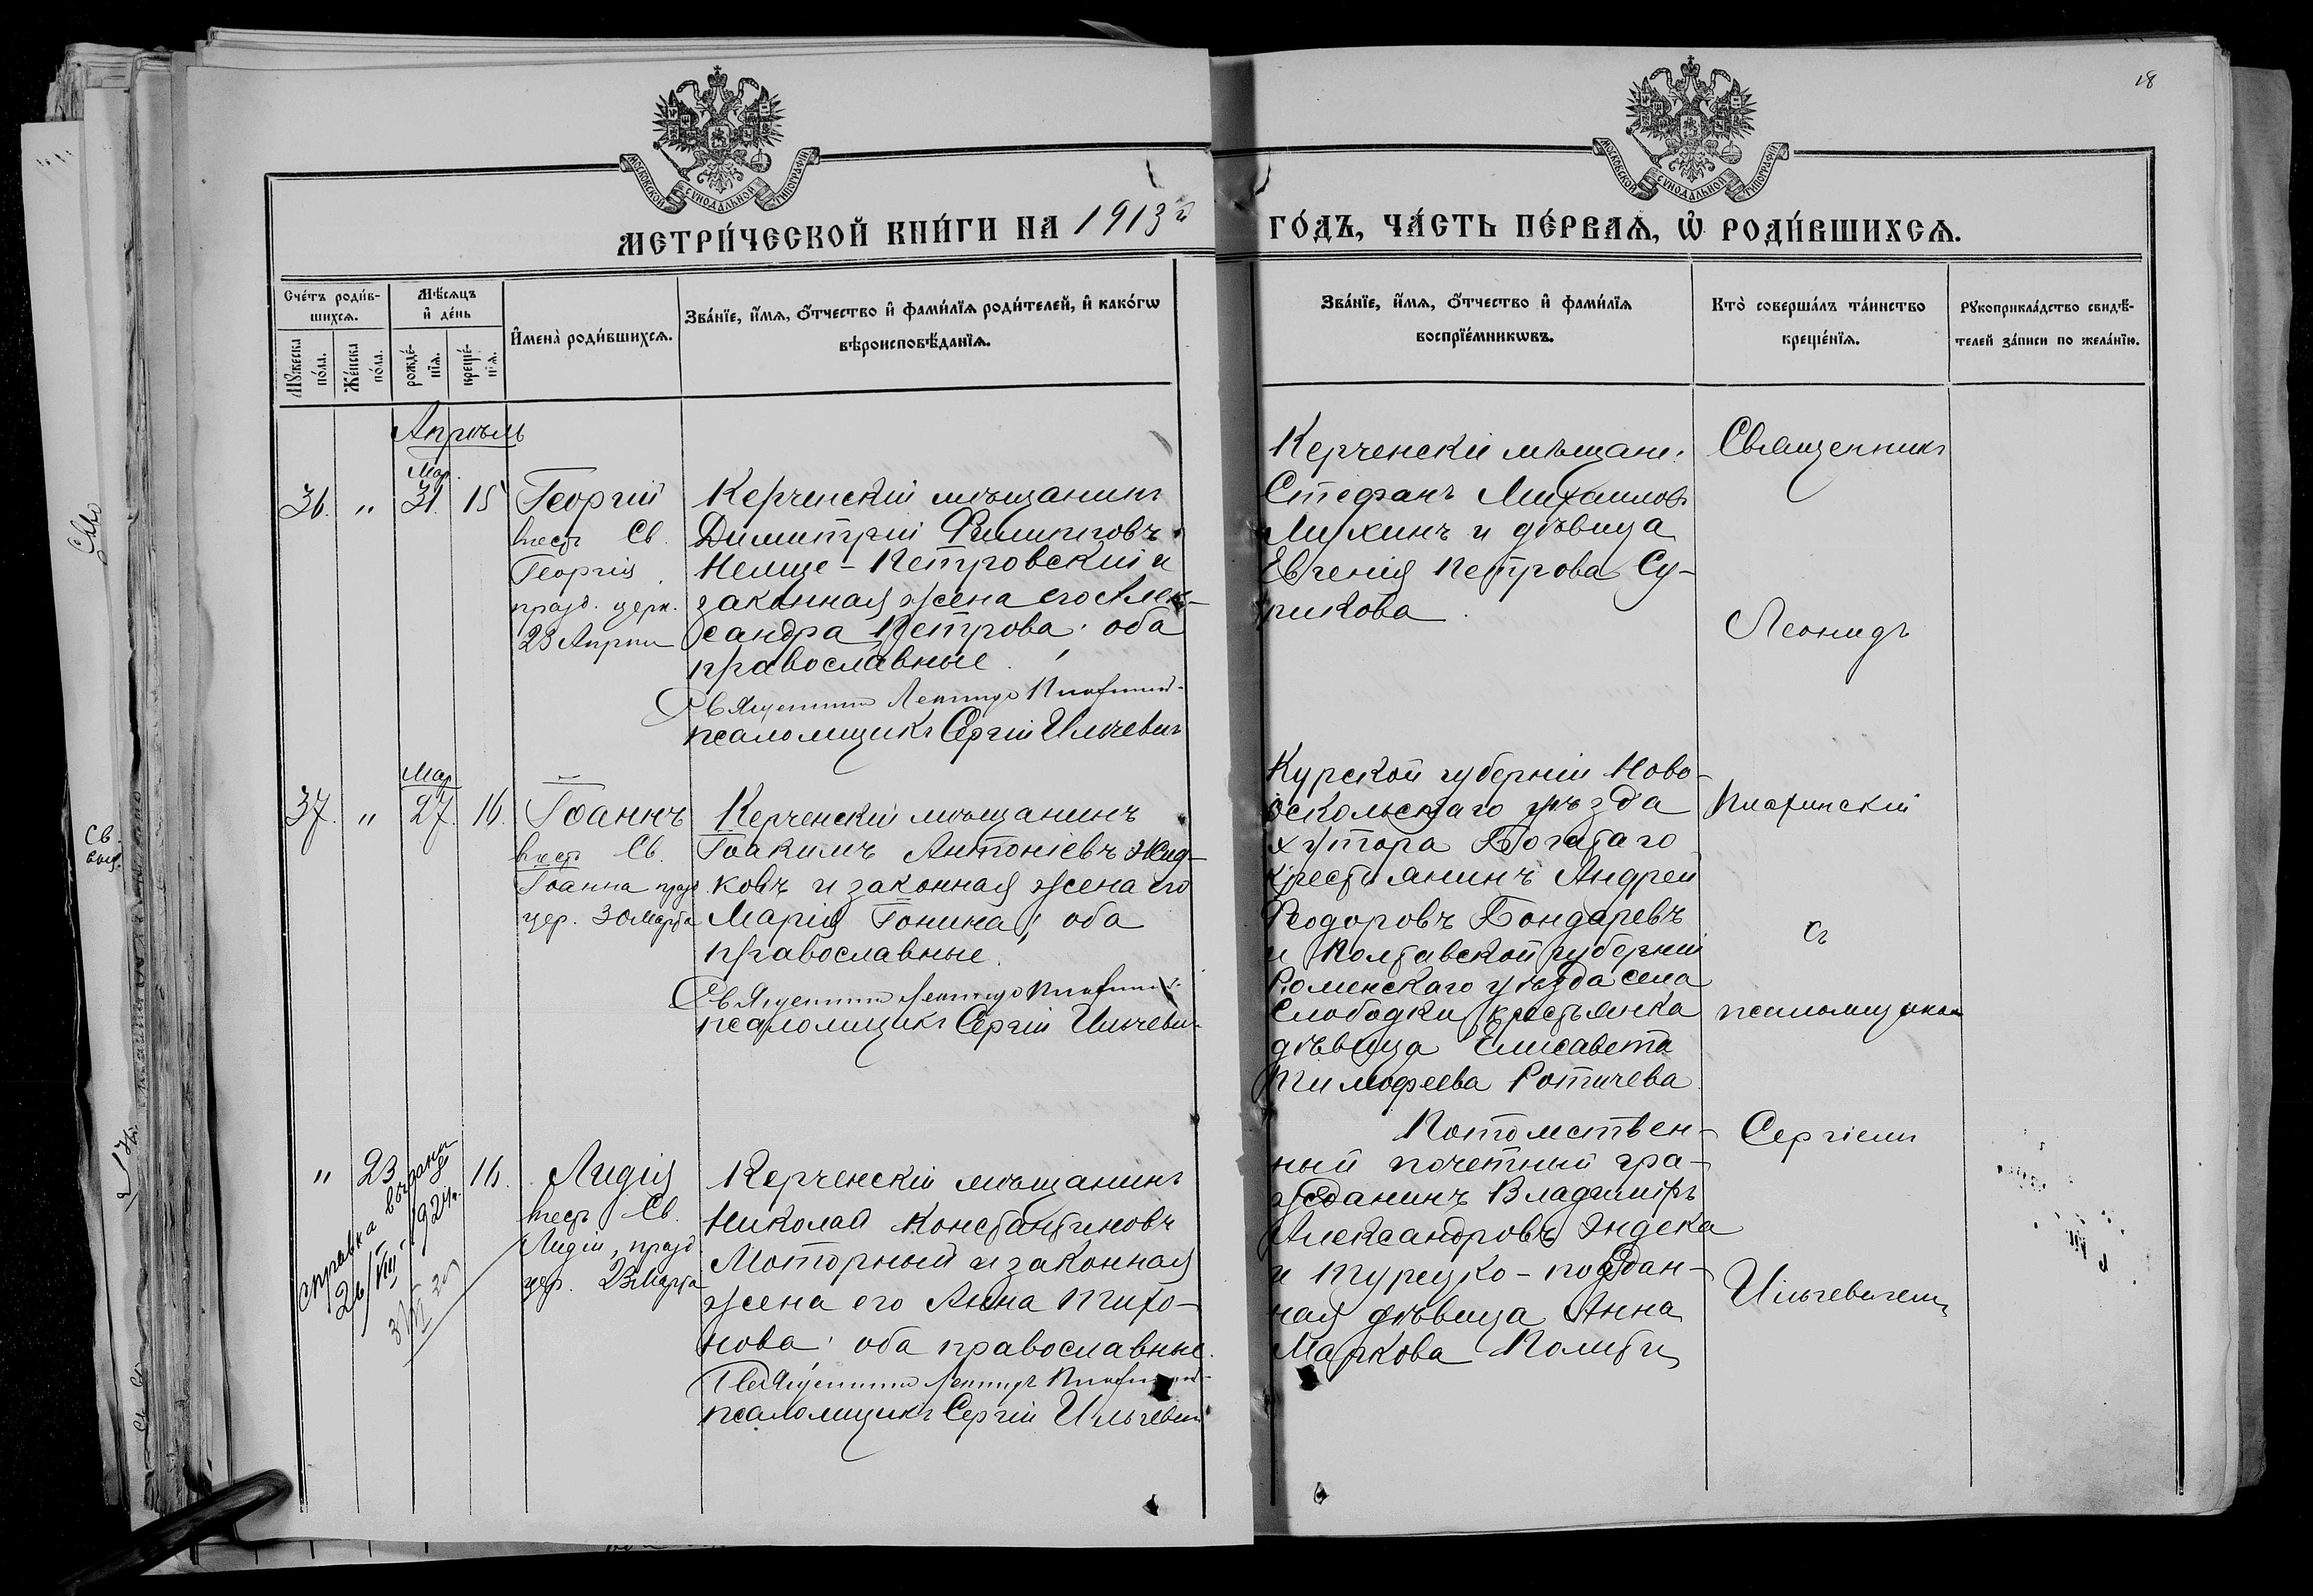 18
МОСКОВСКОЙ СУНОДАЛЬНОЙ ТИПОГРАФІИ
МОСКОВСКОЙ СУНОДАЛЬНОЙ ТИПОГРАФІИ
МЕТРИ́ЧЕСКОЙ КНИ́ГИ НА 1913й
ГО́ДЪ, ЧА́СТЬ ПЕ́РВАѦ, Ѡ҆ РОДИ́ВШИХСѦ.
Сче́тъ роди́в-
шихсѧ.
Мꙋ́жеска
по́ла.
Же́нска
по́ла.
Мѣ́сѧцъ
и҆ де́нь
рожде́-
нїѧ.
креще́-
нїѧ.
И҆мена̀ роди́вшихсѧ.
Зва́нїе, и҆́мѧ, ѻ҆́тчество и҆ фами́лїѧ роди́телей, и҆ како́гѡ
вѣроисповѣ́данїѧ.
Зва́нїе, и҆́мѧ, ѻ҆́тчество и҆ фами́лїѧ
воспрїе́мникѡвъ.
Кто̀ соверша́лъ та́инство
креще́нїѧ.
Рꙋкоприкла́дство свидѣ́-
телей за́писи по жела́нїю.
Апрѣль
Мар.
36. " 31. 15
Георгій
въ честь Св.
Георгія
празд. церк.
23 Апрѣля
Керченскій мѣщанинъ
Димитрій Филипповъ
Немце-Петровскій и
законная жена его Алек-
сандра Петрова; оба
православные.
Священникъ Леонидъ
псаломщикъ Сергій Ильчевич
Керченскій мѣщан.
Стефанъ Михаиловъ
Мухинъ и дѣвица
Евгенія Петрова Су-
рикова.
Священникъ
Леонидъ
Мар
37. " 27. 16.
Іоаннъ
въ честь Св.
Іоанна празд
цер. 30 Марта
Керченскій мѣщанинъ
Іоакимъ Антоніевъ Жид-
ковъ и законная жена его
Марія Іонина; оба
православные.
Священникъ Леонидъ
псаломщикъ Сергій Ильчевич
Курской губерніи Ново-
оскольскаго уѣзда
хутора Богатаго
крестьянинъ Андрей
Ѳеодоровъ Бондаревъ
и Полтавской губерніи
Роменскаго уѣзда села
Слободки крестьянка
дѣвица Елисавета
Тимофеева
съ
псаломщикомъ
" 23 16.
справка выдана
26/VIII 1924г.
Лидія
въ честь Св.
Лидіи, празд.
цер. 23 Марта
Керченскій мѣщанинъ
Николай Константиновъ
Моторный и законная
жена его Анна Тихо-
нова; оба православные.
Священникъ Леонидъ
псаломщикъ Сергій Ильчевич
Потомствен-
ный почетный гра-
жданинъ Владиміръ
Александровъ Индека
и Турецко-поддан-
ная дѣвица Анна
Маркова Полити
Сергіемъ
Ильчевичемъ